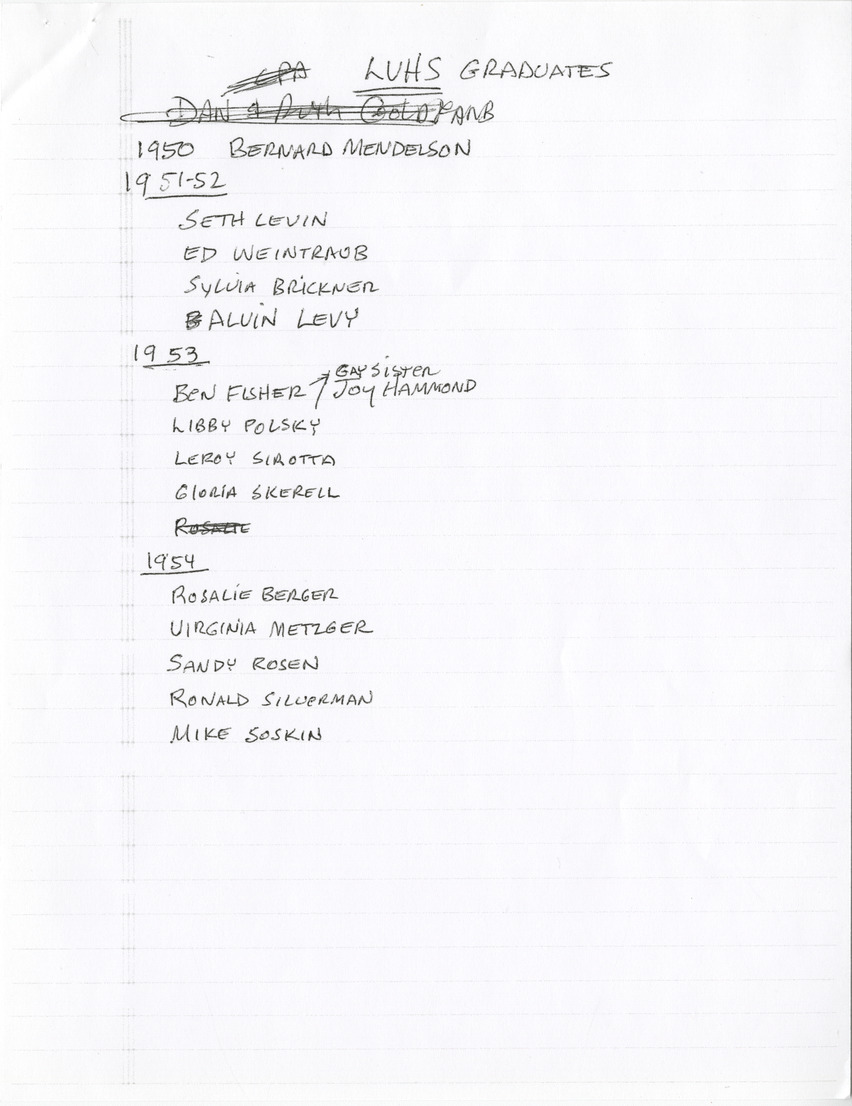 CPA LUHS GRADUATES
DAN & Ruth GOLDFARB
1950 BERNARD MENDELSON
1951-52
SETH LEVIN
ED WEINTRAUB
SYLVIA BRICKNER
ALVIN LEVY
1953
GAY SISTER
BEN FISHER JOY HAMMOND
LIBBY POLSKY
LEROY SIROTTA
GLORIA SKERELL
ROSALIE
1954
ROSALIE BERGER
VIRGINIA METZGER
SANDY ROSEN
RONALD SILVERMAN
MIKE SOSKIN